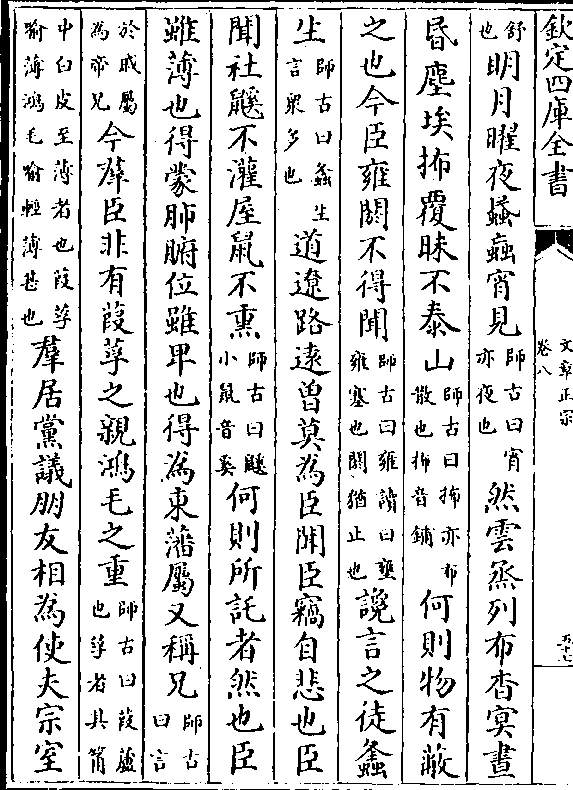 欽定四庫全書
文章正宗
卷八
五十七
舒也明月曜夜蟁蟲宵見師古曰宵亦夜也然雲烝列布杳冥晝
昏塵埃抪覆昧不泰山師古曰抪亦布散也抪音鋪何則物有蔽
之也今臣雍閼不得聞師古曰雍讀曰壅雍塞也閼猶止也讒言之徒螽
生師古曰螽生言眾多也道遼路遠曾莫為臣聞臣竊自悲也臣
聞社鼷不灌屋䑕不熏師古曰鼷小䑕音奚何則所託者然也臣
雖薄也得蒙肺腑位雖卑也得為東藩屬又稱兄師古曰言
於戚屬為帝兄今羣臣非有葭莩之親鴻毛之重師古曰葭蘆也莩者其筩
中白皮至薄者也葭莩喻薄鴻毛喻輕薄甚也羣居黨議朋友相為使夫宗室